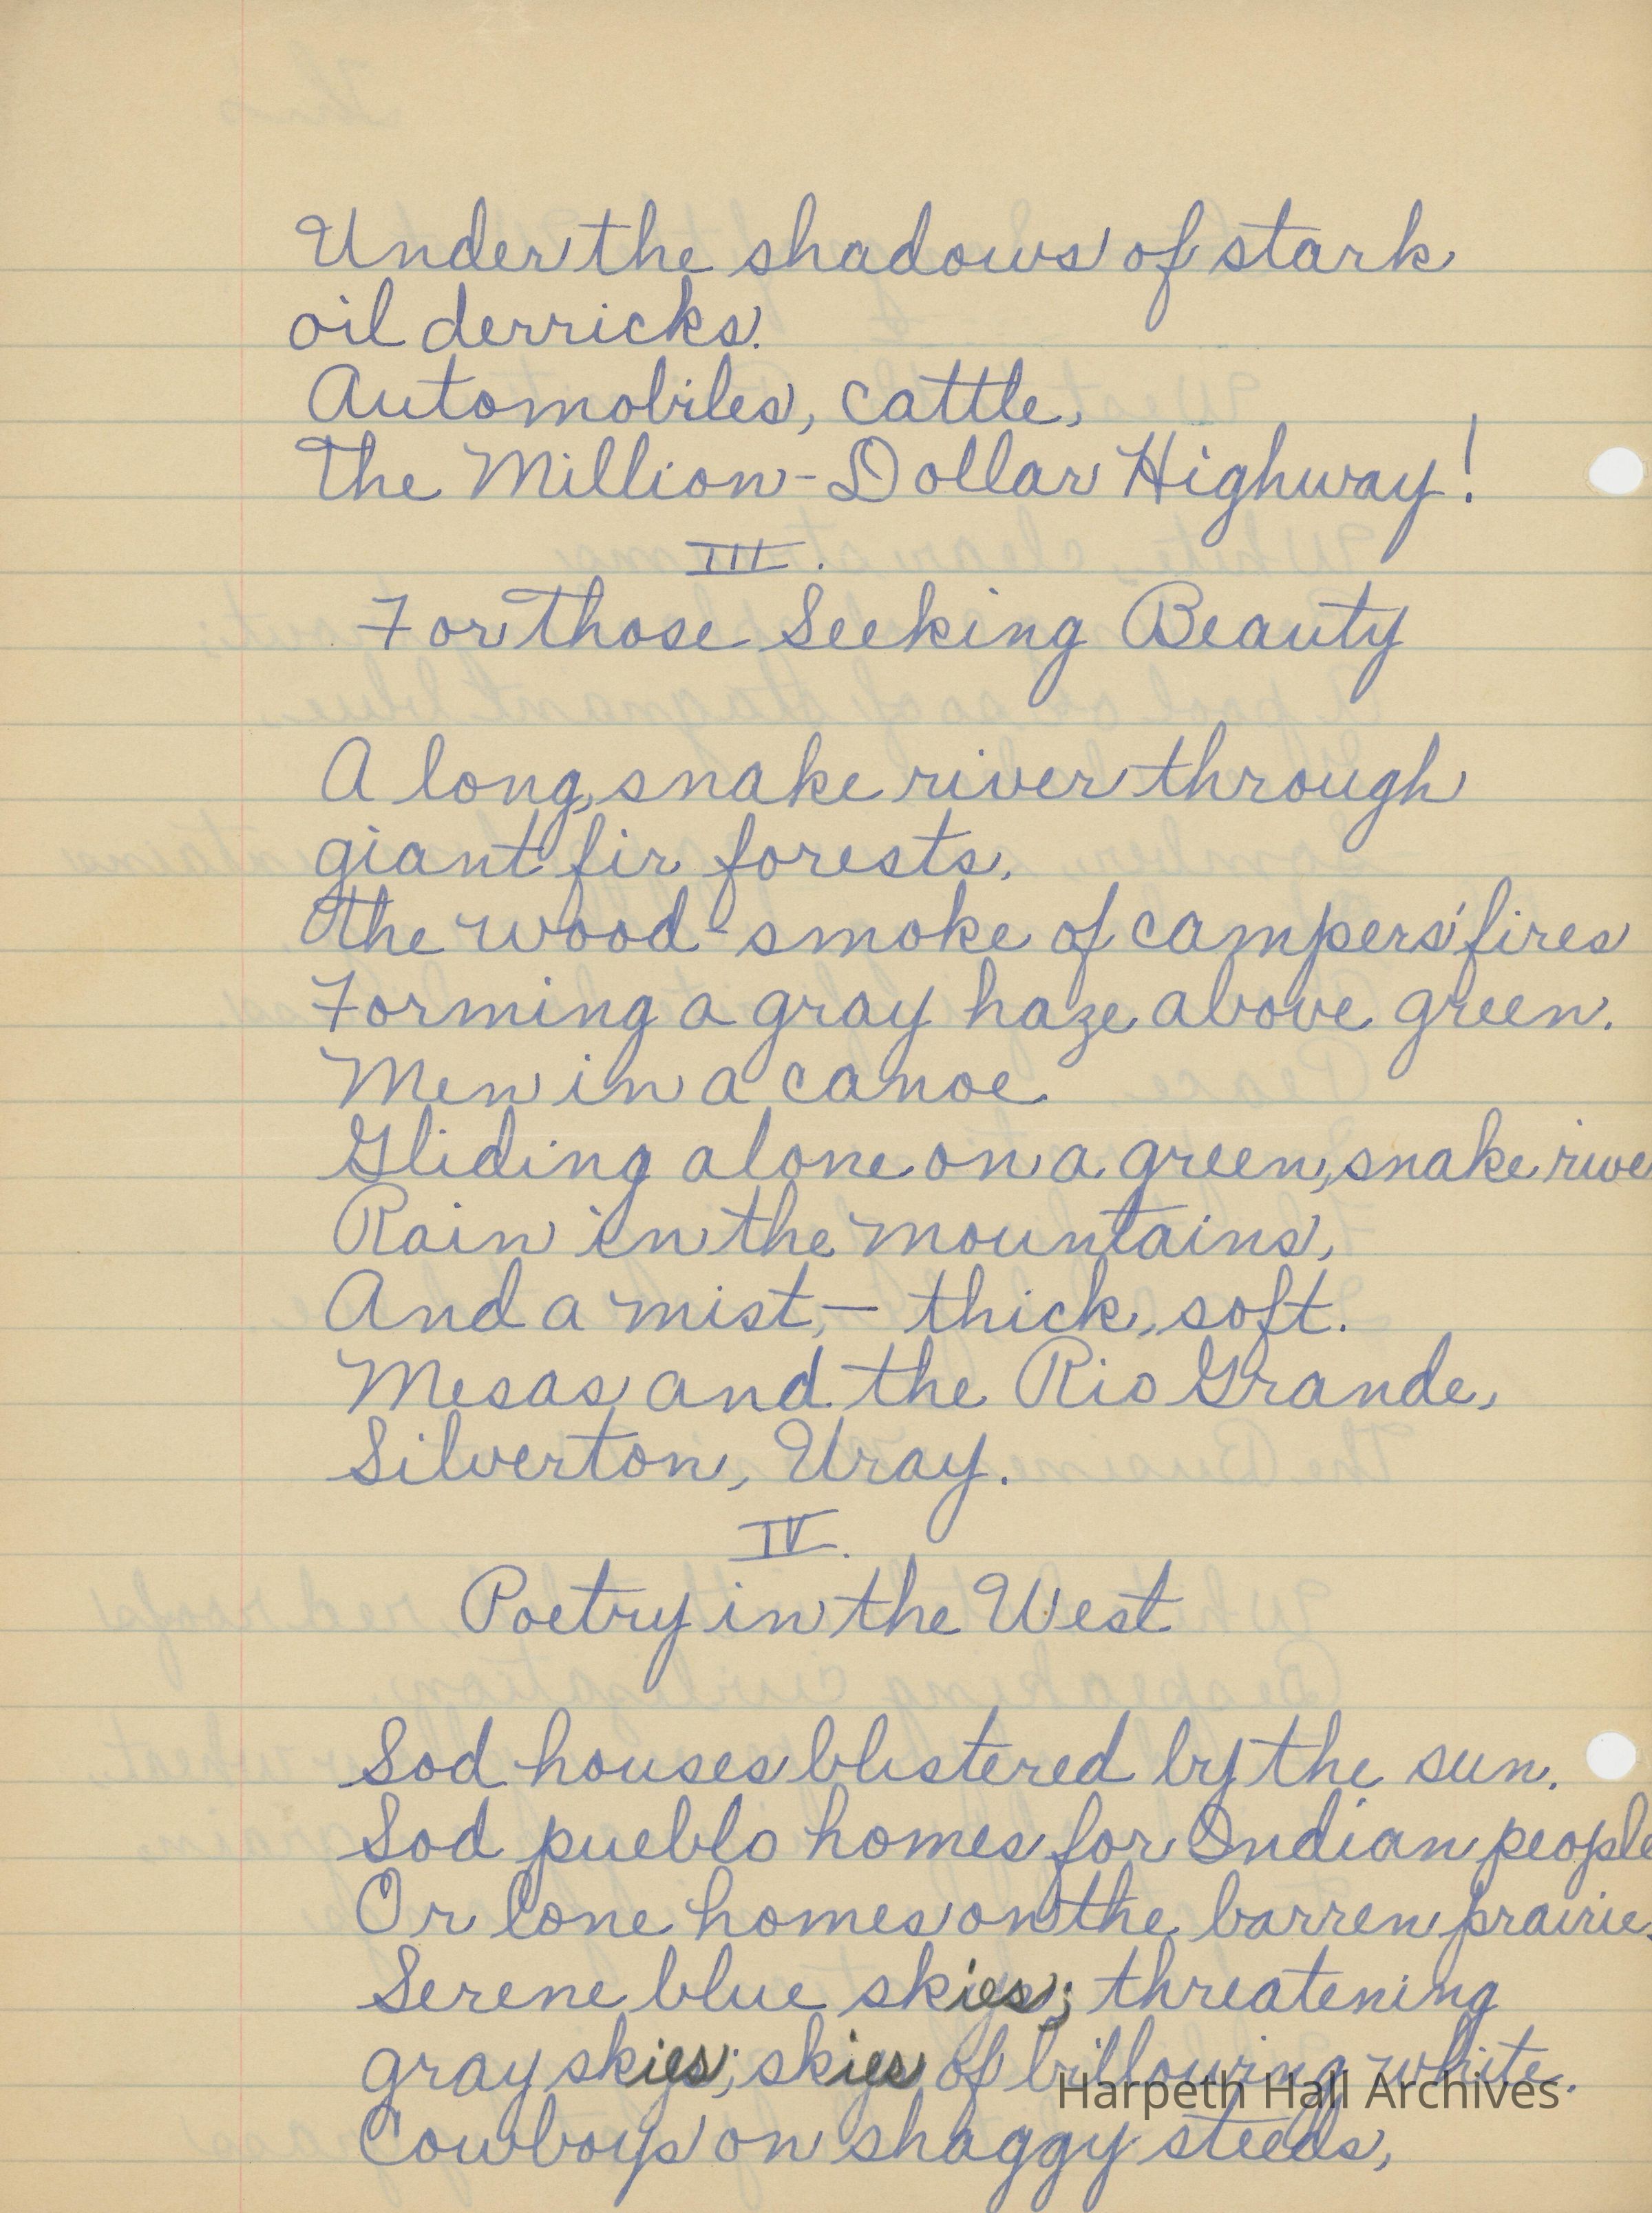 Under the shadows of stark
oil derricks.
Automobiles, cattle,
The Million-Dollar Highway!
III.
For Those Seeking Beauty
A long, snake river through
giant fir forests.
The wood-smoke of campers' fires
Forming a gray haze above green.
Men in a canoe
Gliding alone on a green, snake rive
Rain in the mountains,
And a mist,- thick, soft.
Mesas and the Rio Grande,
Silverton, Uray.
IV.
Poetry in the West
Sod houses blistered by the sun.
Sod pueblo homes for Indian people
Or lone homes on the barren prairie.
Serene blue skies; threatening
gray skies; skies of billowing white.
Harpeth Hall Archives
Cowboys on shaggy steeds,